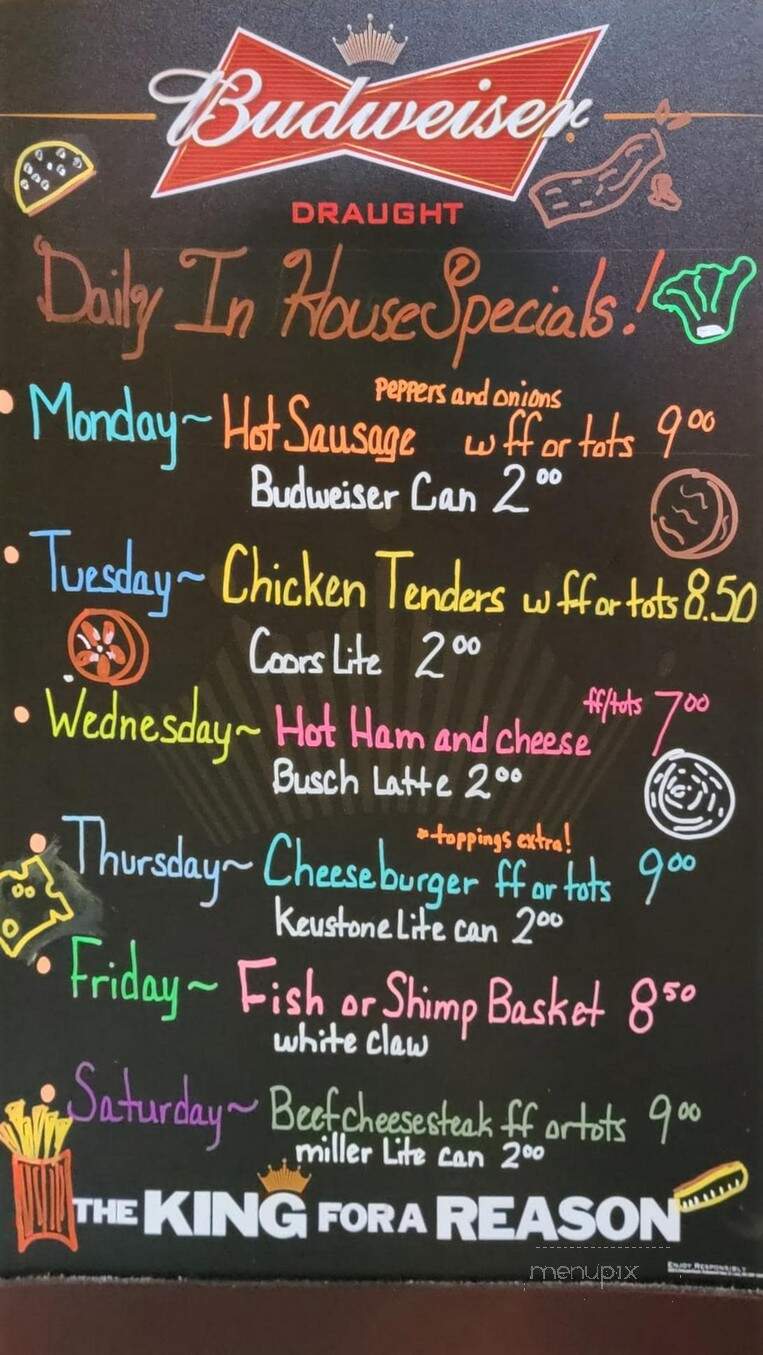 Budweiser
DRAUGHT
Daily In House Specials!
peppers and onions
Monday~ Hot Sausage w ff or tots 9.00
Budweiser Can 2.00
Tuesday~ Chicken Tenders w ff or tots 8.50
Coors Lite 2.00
ff/tots
Wednesday~ Hot Ham and cheese 7.00
Busch Latte 2.00
*toppings extra!
Thursday~ Cheeseburger ff or tots 9.00
Keustone Lite can 2.00
Friday~ Fish or Shimp Basket 8.50
white claw
Saturday~ Beef cheesesteak ff or tots 9.00
miller Lite can 2.00
THE KING FOR A REASON
menupix
ENJOY RESPONSIBLY